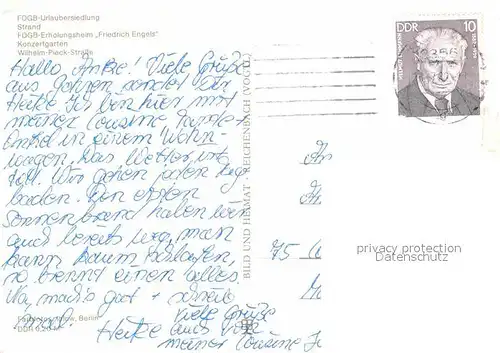 FDGB-Urlaubersiedlung
Strand
FDGB-Erholungsheim „Friedrich Engels"
Konzertgarten
Wilhelm-Pieck-Straße
Hallo, Antje! Viele Grüße
aus sendet Dir
Heike. Ich bin hier mit
meiner Cousine
und in einem Wohn-
wagen. Das Wetter ist
toll. Wir gehen jeden Tag
baden. Den ersten
Sonnenbrand haben wir
auch bereits weg, man
kann kaum schlafen,
so brennt einem alles.
Na, mach's gut + schreib
mal.
Viele Grüße
Heike auch von
meiner Cousine
Berlin
DDR
BILD UND HEIMAT REICHENBACH (VOGTL)
DDR 10
75
privacy protection
Datenschutz